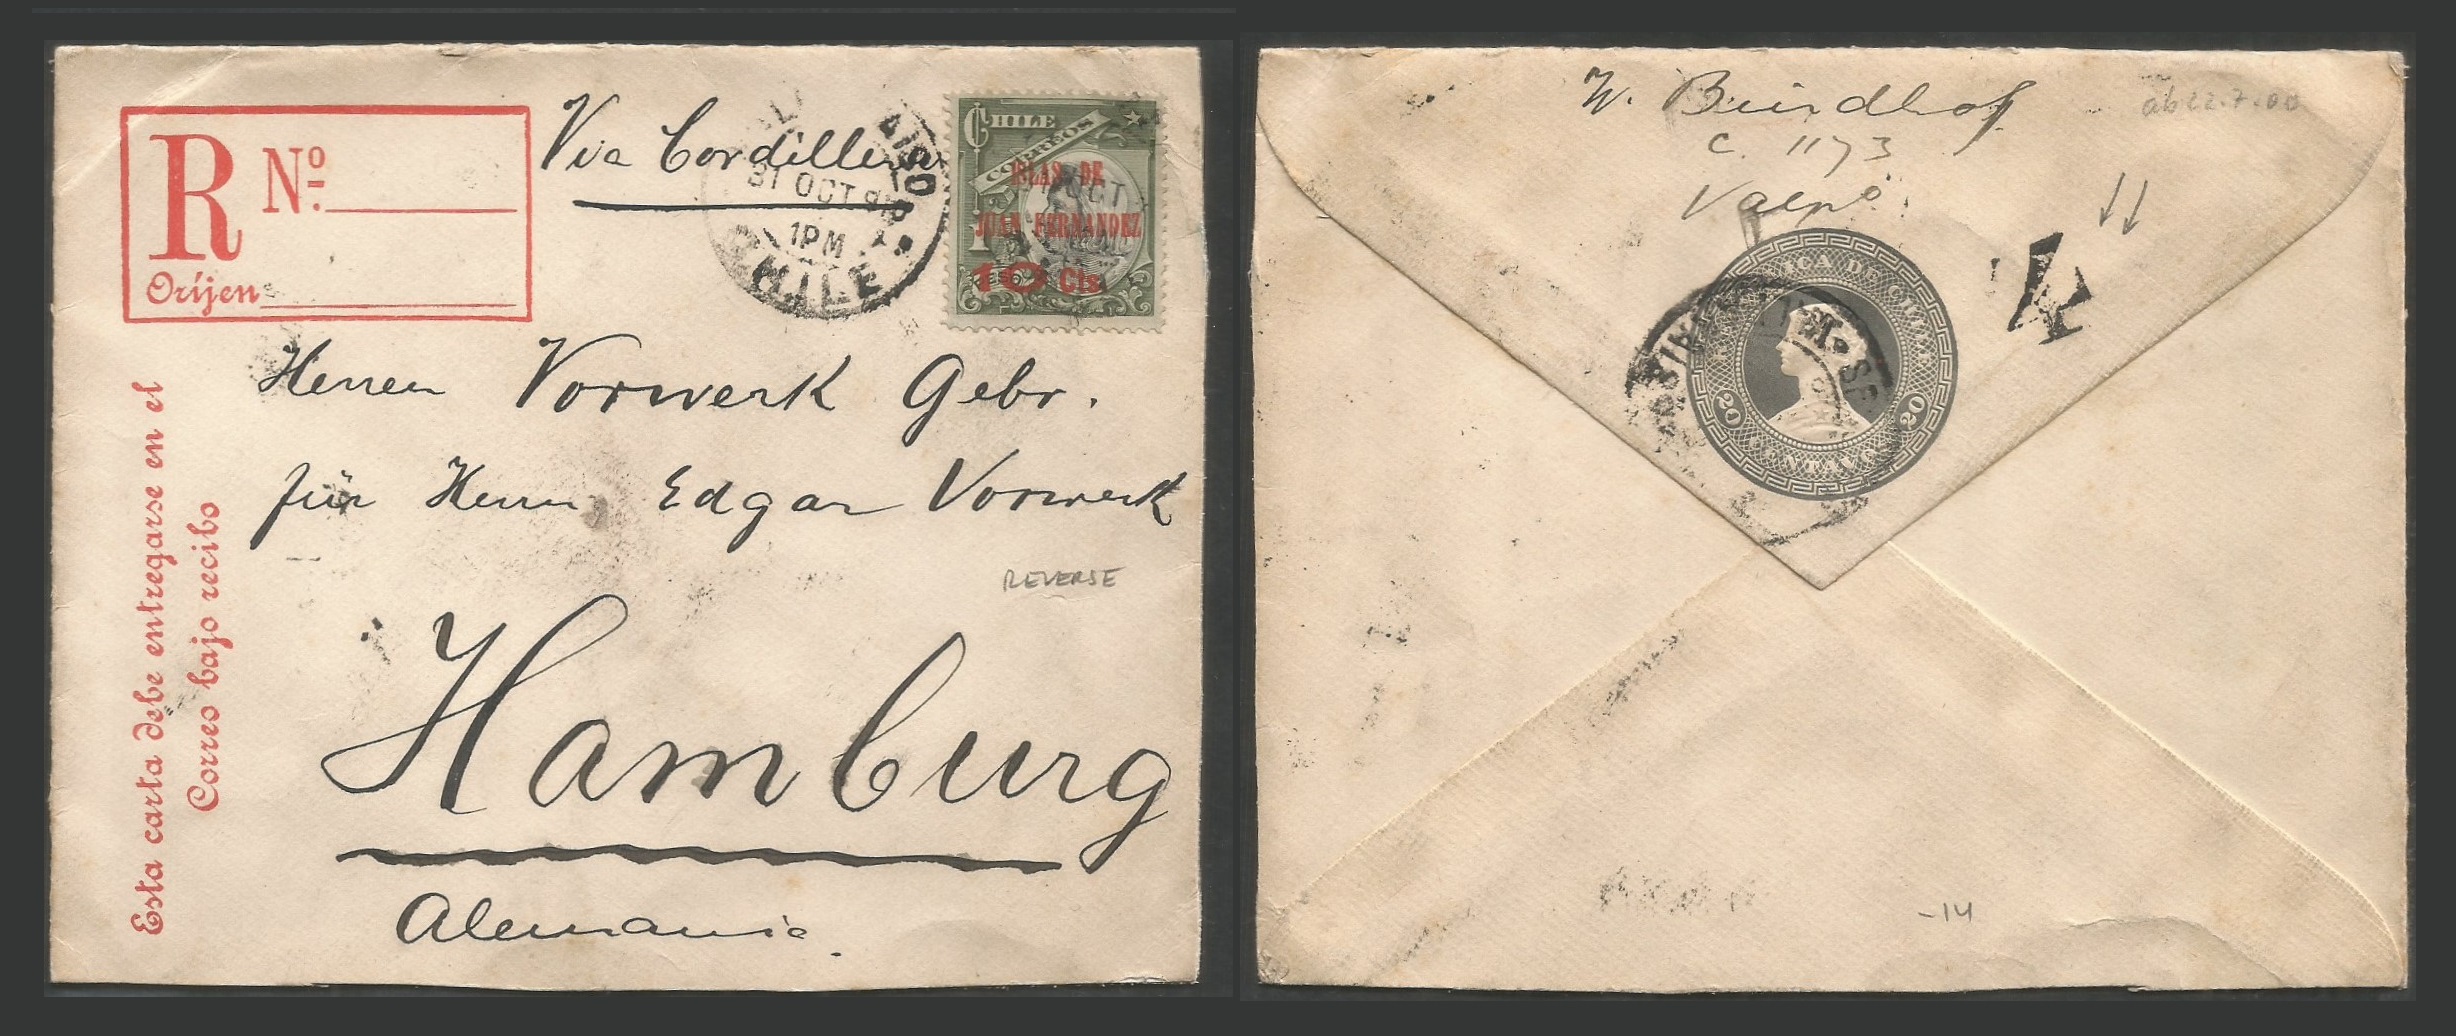 R Nº
Oríjen
Via Cordillera
31 OCT
1PM
CHILE
CHILE
CORREOS
ISLAS DE
JUAN FERNANDEZ
10 Cts.
Herren Vorwerk Gebr.
für Herrn Edgar Vorwerk
REVERSE
Hamburg
Alemania.
Esta carta debe entregarse en el
Correo bajo recibo
W.
C. 1173
Valpº
ab 22.7.00
4
REPUBLICA DE CHILE
20 CENTAVOS 20
-14